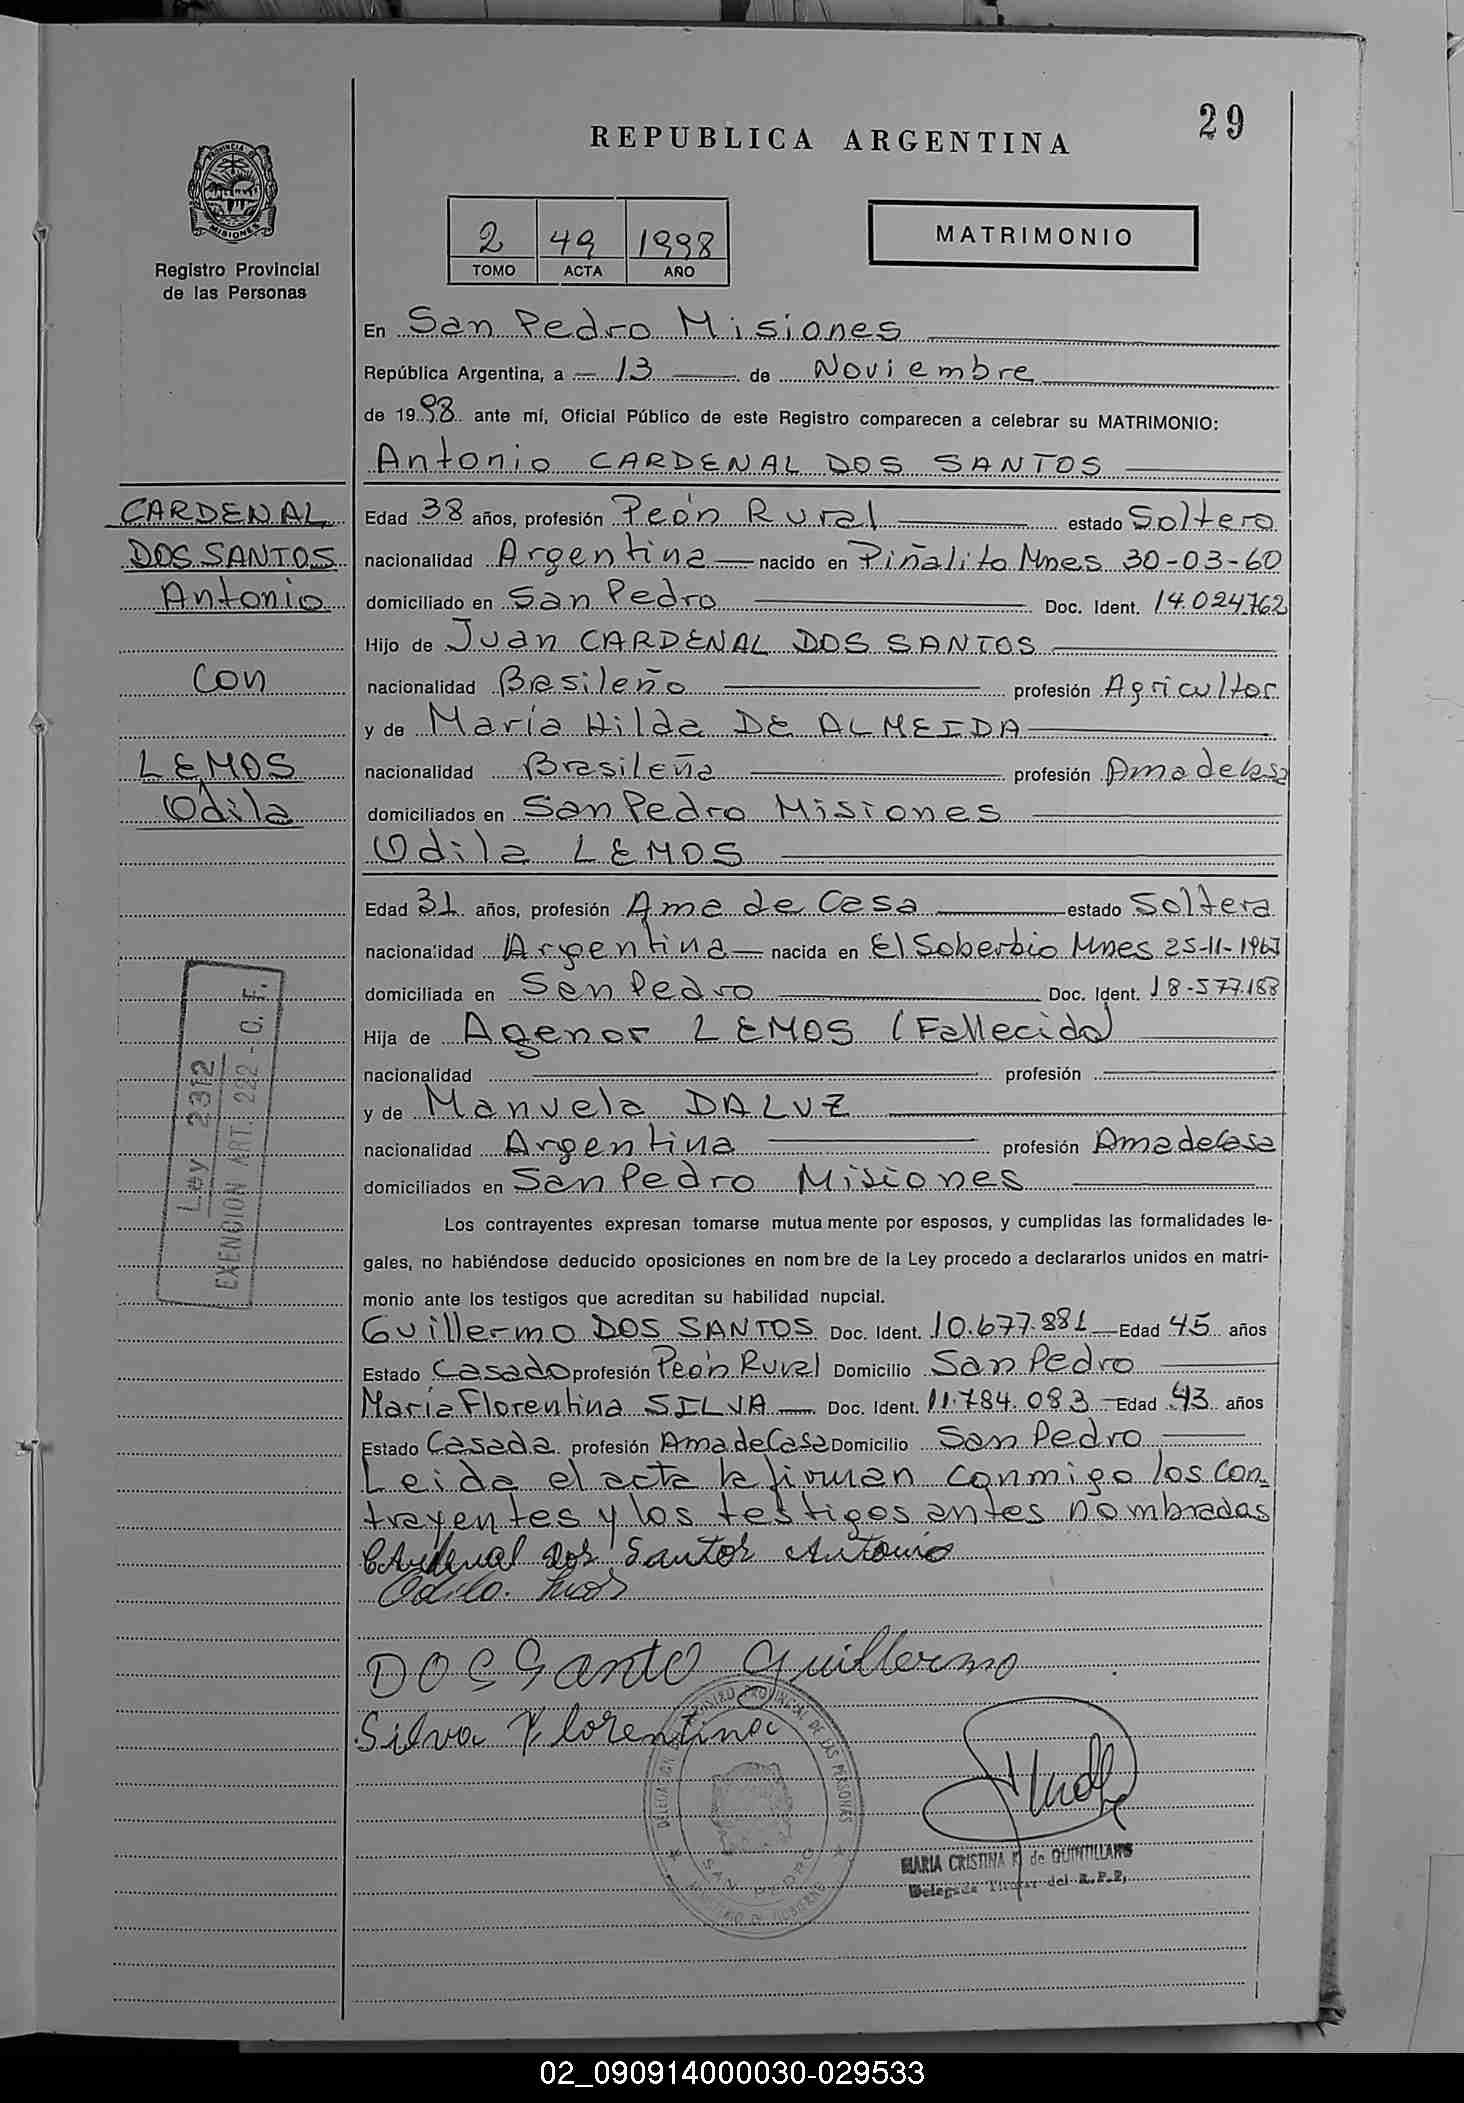 29
REPUBLICA ARGENTINA
PROVINCIA DE
MISIONES
Registro Provincial
de las Personas
2 49 1998
TOMO ACTA AÑO
MATRIMONIO
En San Pedro Misiones
República Argentina, a 13 de Noviembre
de 1998 ante mí, Oficial Público de este Registro comparecen a celebrar su MATRIMONIO:
Antonio CARDENAL DOS SANTOS
CARDENAL
DOS SANTOS
Antonio
Con
LEMOS
Odila
Edad 38 años, profesión Peón Rural estado Soltero
nacionalidad Argentina nacido en Piñalito Mnes 30-03-60
domiciliado en San Pedro Doc. Ident. 14.024762
Hijo de Juan CARDENAL DOS SANTOS
nacionalidad Brasileño profesión Agricultor
y de María Hilda DE ALMEIDA
nacionalidad Brasileña profesión Ama de Casa
domiciliados en San Pedro Misiones
Odila LEMOS
Edad 31 años, profesión Ama de Casa estado Soltera
nacionalidad Argentina nacida en El Soberbio Mnes 25-11-1967
domiciliada en San Pedro Doc. Ident. 18-577.188
Hija de Agenor LEMOS (Fallecido)
nacionalidad profesión
y de Manuela DALUZ
nacionalidad Argentina profesión Ama de Casa
domiciliados en San Pedro Misiones
Ley 2312
EXENCION ART. 222 - C. F.
Los contrayentes expresan tomarse mutua mente por esposos, y cumplidas las formalidades le-
gales, no habiéndose deducido oposiciones en nom bre de la Ley procedo a declararlos unidos en matri-
monio ante los testigos que acreditan su habilidad nupcial.
Guillermo DOS SANTOS Doc. Ident. 10.677.881 Edad 45 años
Estado Casado profesión Peón Rural Domicilio San Pedro
María Florentina SILVA Doc. Ident. 11.784.083 Edad 43 años
Estado Casada profesión Ama de Casa Domicilio San Pedro
Leida el acta la firman conmigo los con-
trayentes y los testigos antes nombrados
Cardenal Dos Santos Antonio
Odila
DOS Santo Guillermo
Silva Florentina
DELEGACION REGISTRO PROVINCIAL DE LAS PERSONAS
SAN PEDRO
MARIA CRISTINA de QUINTILLANO
Delegada Titular del R.P.P.
02_090914000030-029533